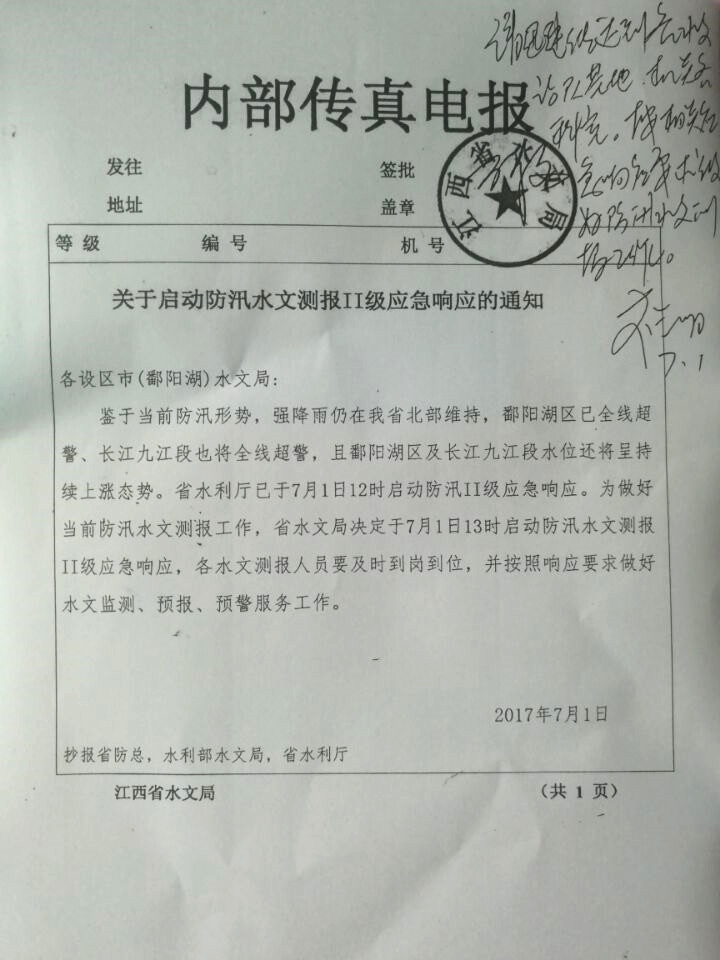 内部传真电报
发往
签批
地址
盖章
江西省水文局
等级 编号 机号
关于启动防汛水文测报II级应急响应的通知
各设区市(鄱阳湖)水文局:
鉴于当前防汛形势，强降雨仍在我省北部维持，鄱阳湖区已全线超
警、长江九江段也将全线超警，且鄱阳湖区及长江九江段水位还将呈持
续上涨态势。省水利厅已于7月1日12时启动防汛II级应急响应。为做好
当前防汛水文测报工作，省水文局决定于7月1日13时启动防汛水文测报
II级应急响应，各水文测报人员要及时到岗到位，并按照响应要求做好
水文监测、预报、预警服务工作。
2017年7月1日
抄报省防总，水利部水文局，省水利厅
江西省水文局
（共 1 页）
科室。按相关应
急响应要求做
好防汛水文测
报工作。
7.1